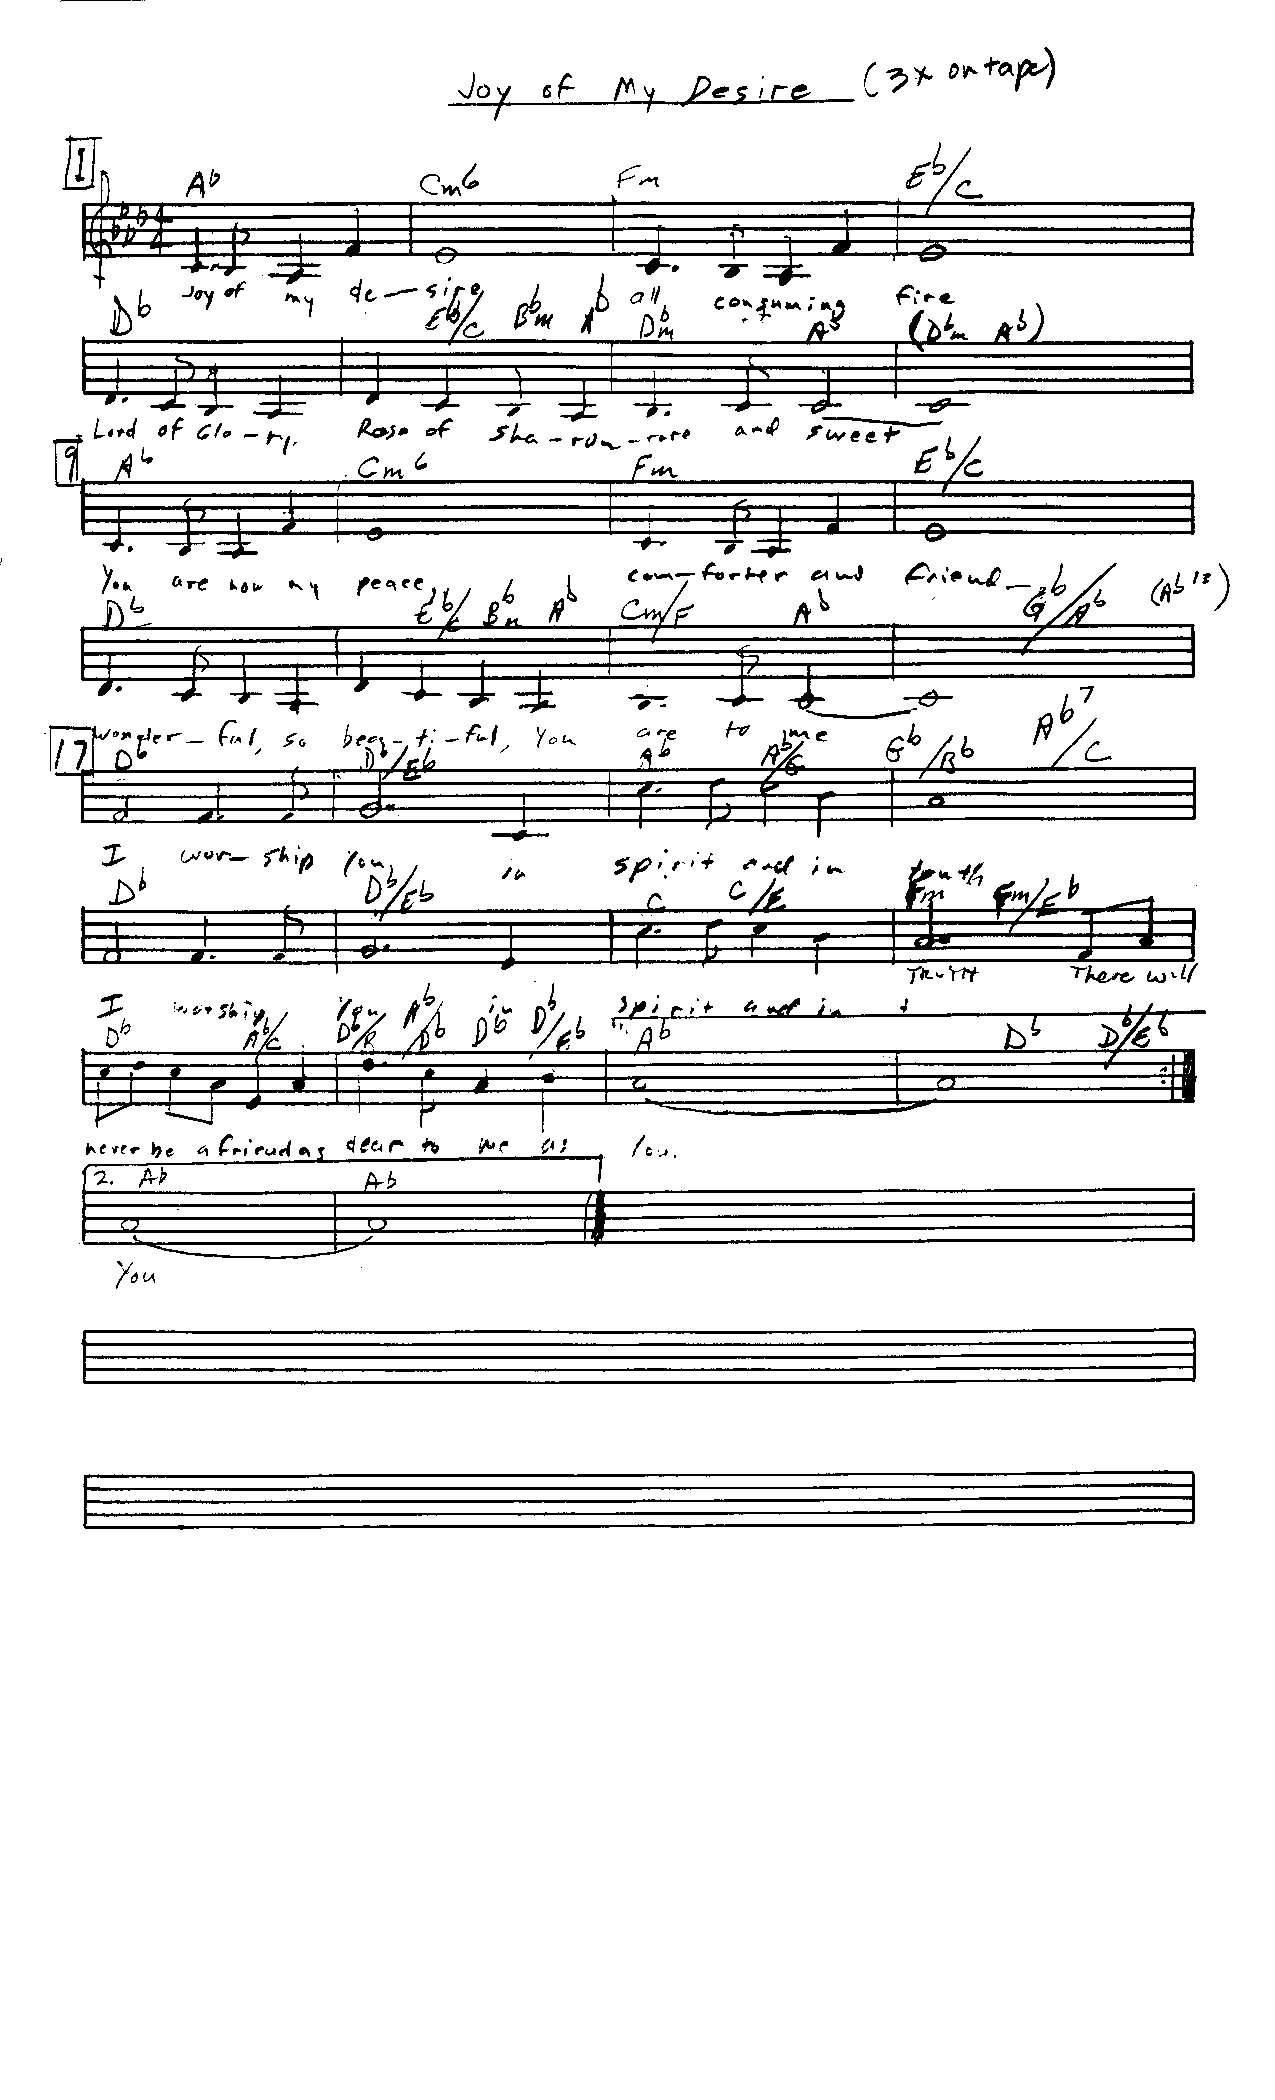 Joy of My Desire (3x on tape)
1
Ab Cm6 Fm Eb/C
4/4
Joy of my de-sire all consuming fire
Db Eb/C Bbm Ab Dbm Ab (Dbm Ab)
Lord of Glo-ry, Rose of Sha-ron-rare and sweet
9
Ab Cm6 Fm Eb/C
You are now my peace, com-forter and friend-
Db Eb/C Bbm Ab Cm/F Ab Gb/Ab (Ab13)
wonder-ful, so beau-ti-ful, You are to me
17
Db Db/Eb Ab Ab/G Gb/Bb Ab7/C
I wor-ship You in spirit and in truth
Db Db/Eb C C/E Fm Fm/Eb
I worship You in spirit and in TRUTH There will
Db Ab/C Ab/Db Db Db/Eb Ab Db Db/Eb
never be a friend as dear to me as You.
2. Ab Ab
You